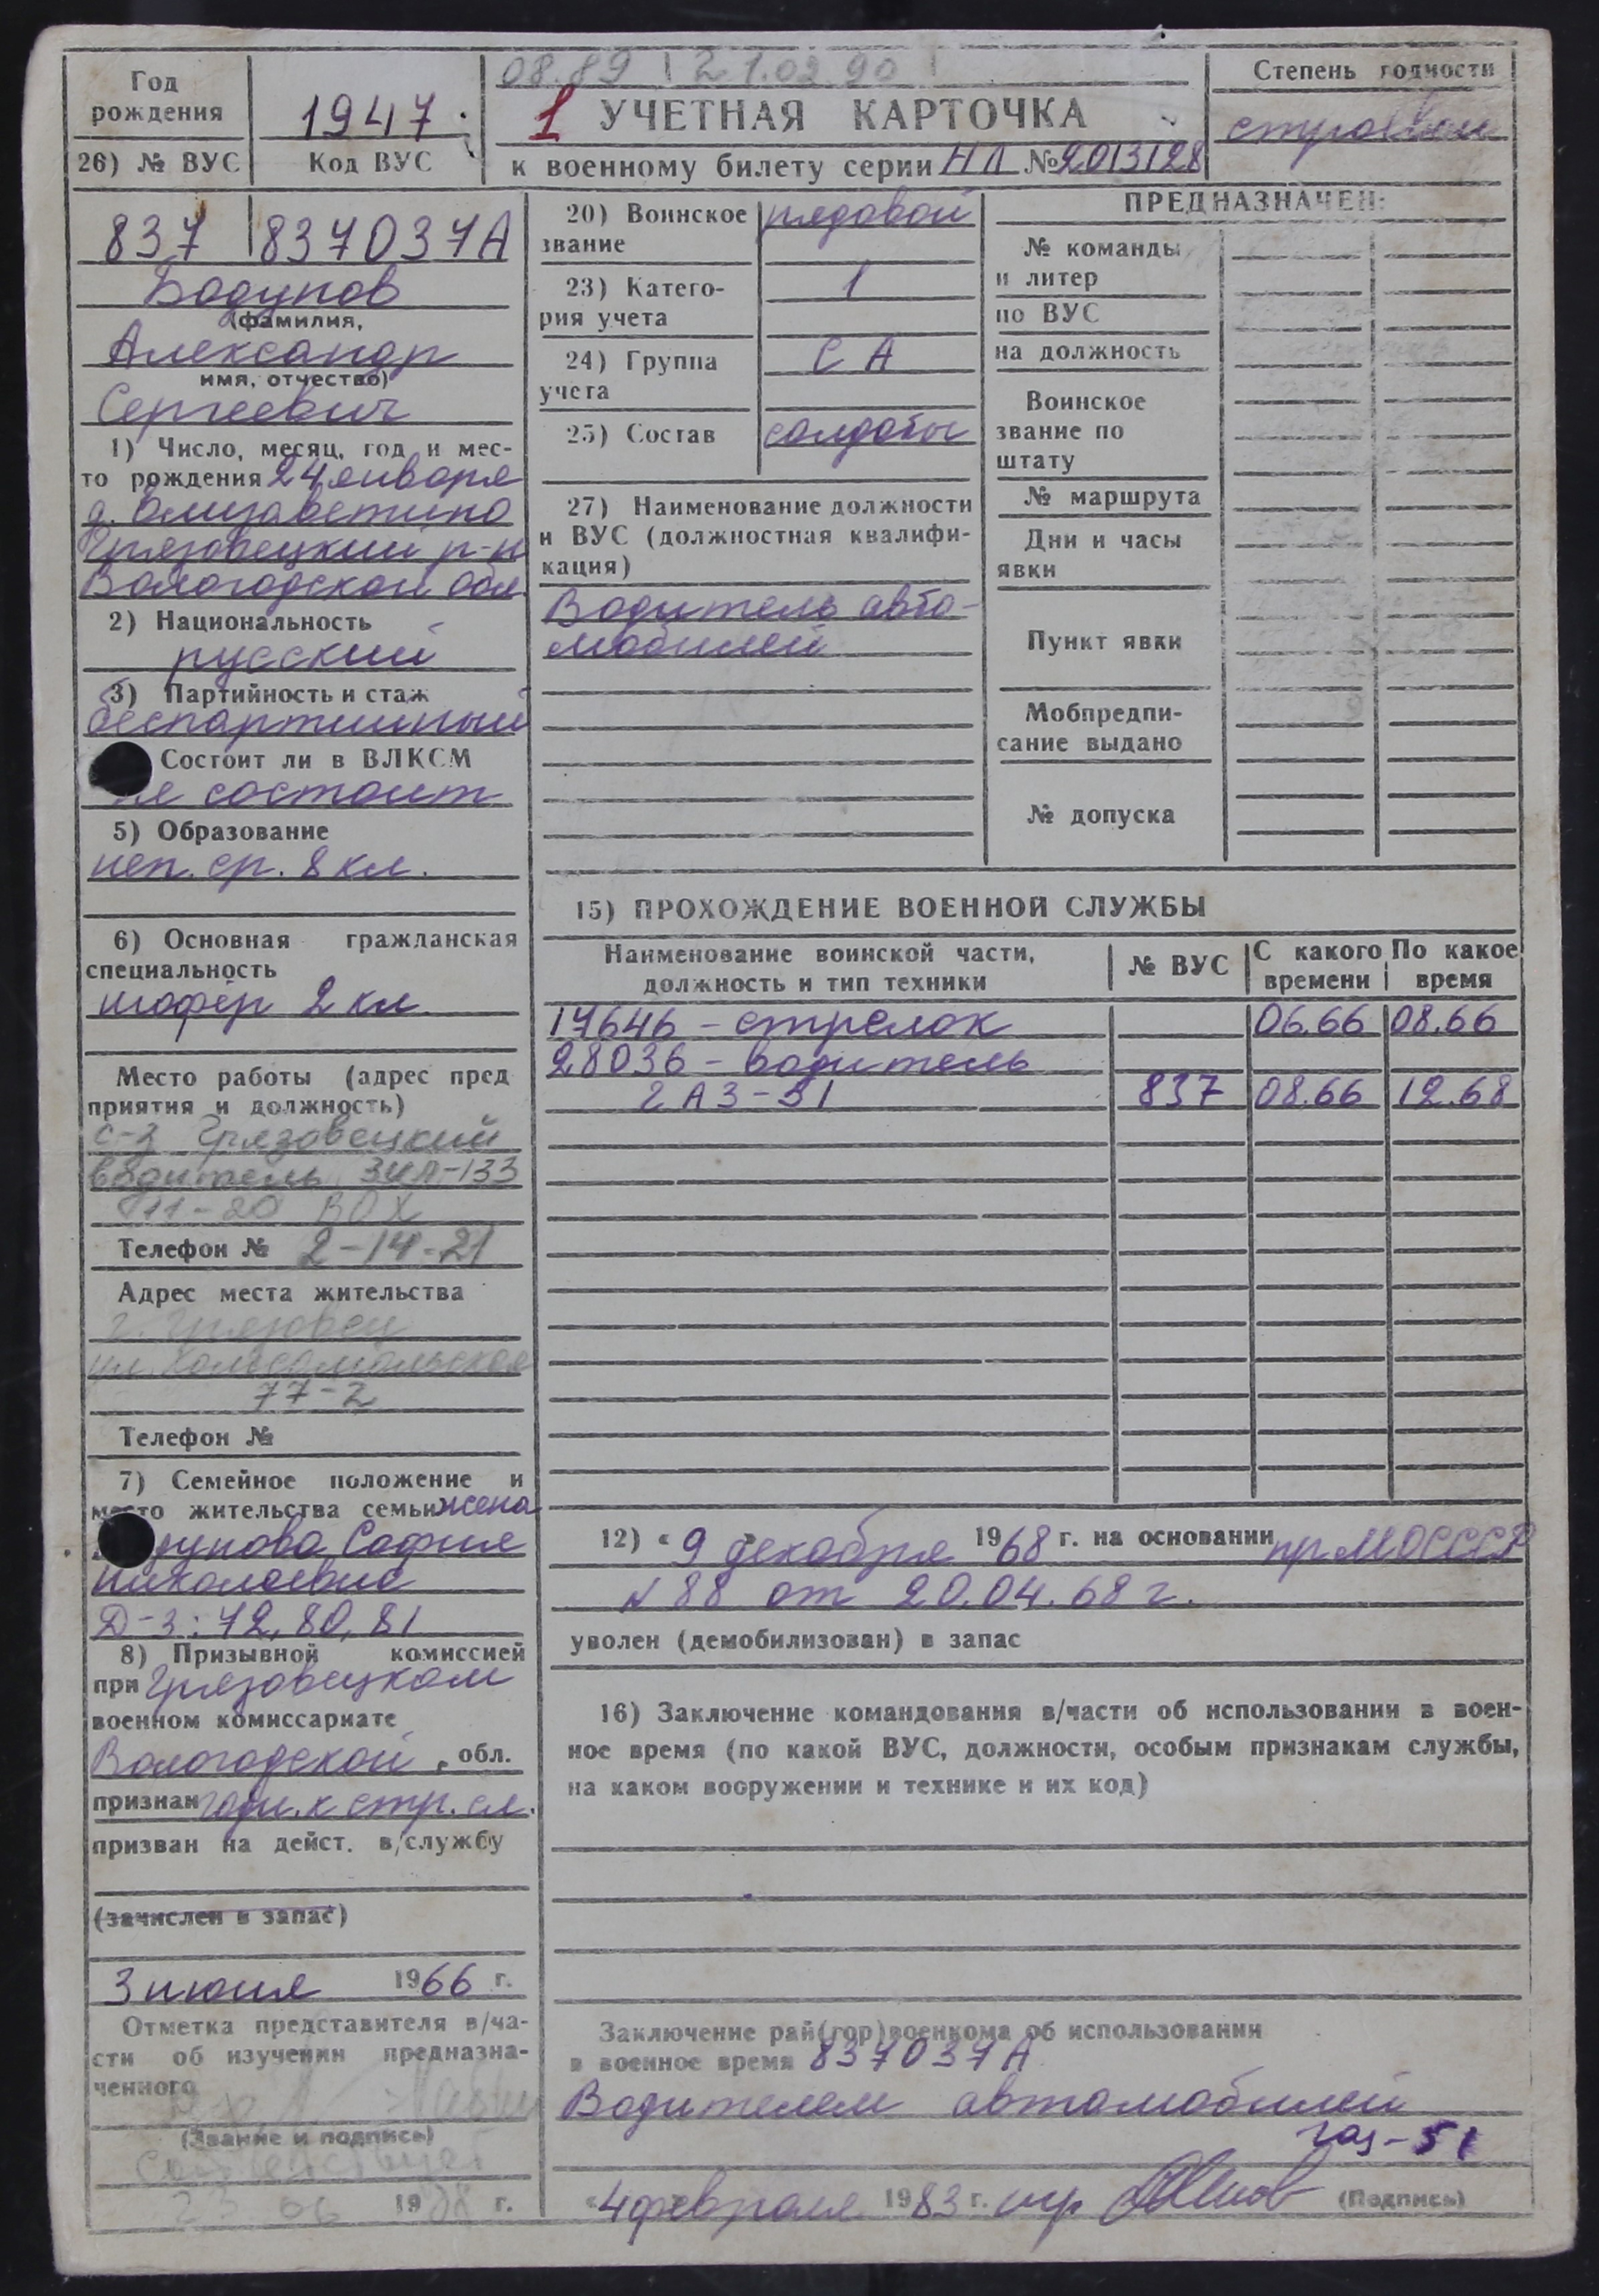 08.89 21.02.90
Год
рождения
1947
26) № ВУС
Код ВУС
1 УЧЕТНАЯ КАРТОЧКА
к военному билету серии НЛ № 2013128
Степень годности
строевой
837 837037А
Бодунов
(фамилия,
Александр
имя, отчество)
Сергеевич
1) Число, месяц, год и мес-
то рождения 24 января
д. Елизаветино
Грязовецкий р-н
Вологодской обл.
2) Национальность
русский
3) Партийность и стаж
беспартийный
Состоит ли в ВЛКСМ
не состоит
5) Образование
неп. ср. 8 кл.
6) Основная гражданская
специальность
шофёр 2 кл.
Место работы (адрес пред
приятия и должность)
с-з Грязовецкий
водитель ЗИЛ-133
11-20 ВОХ
Телефон № 2-14-21
Адрес места жительства
г. Грязовец
ул. Комсомольская
77-2
Телефон №
7) Семейное положение и
место жительства семьи жена
София
Николаевна
Д-з: 72, 80, 81
8) Призывной комиссией
при Грязовецком
военном комиссариате
Вологодской обл.
признан годн. к стр. сл.
призван на дейст. в/службу
(зачислен в запас)
3 июня 1966 г.
Отметка представителя в/ча-
сти об изучении предназна-
ченного
(Звание и подпись)
19 г.
20) Воинское рядовой
звание
23) Катего- 1
рия учета
24) Группа СА
учета
25) Состав солдаты
27) Наименование должности
и ВУС (должностная квалифи-
кация)
Водитель авто-
мобилей
ПРЕДНАЗНАЧЕН:
№ команды
и литер
по ВУС
на должность
Воинское
звание по
штату
№ маршрута
Дни и часы
явки
Пункт явки
Мобпредпи-
сание выдано
№ допуска
15) ПРОХОЖДЕНИЕ ВОЕННОЙ СЛУЖБЫ
Наименование воинской части,
должность и тип техники
№ ВУС
С какого
времени
По какое
время
17646 – стрелок 06.66 08.66
28036 – водитель
ГАЗ-51 837 08.66 12.68
12) « 9 » декабря 1968 г. на основании пр МО СССР
№ 88 от 20.04.68 г.
уволен (демобилизован) в запас
16) Заключение командования в/части об использовании в воен-
ное время (по какой ВУС, должности, особым признакам службы,
на каком вооружении и технике и их код)
Заключение рай(гор)военкома об использовании
в военное время 837037А
Водителем автомобилей
газ-51
«4 февраля 1983 г. (Подпись)